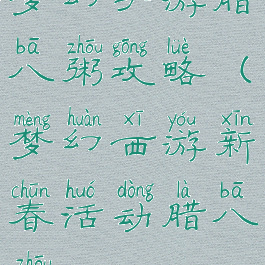 游腊
bā zhōu gōng lüè
八粥攻略（
mèng huàn xī yóu xīn
梦幻西游新
chūn huó dòng là bā
春活动腊八
zhōu